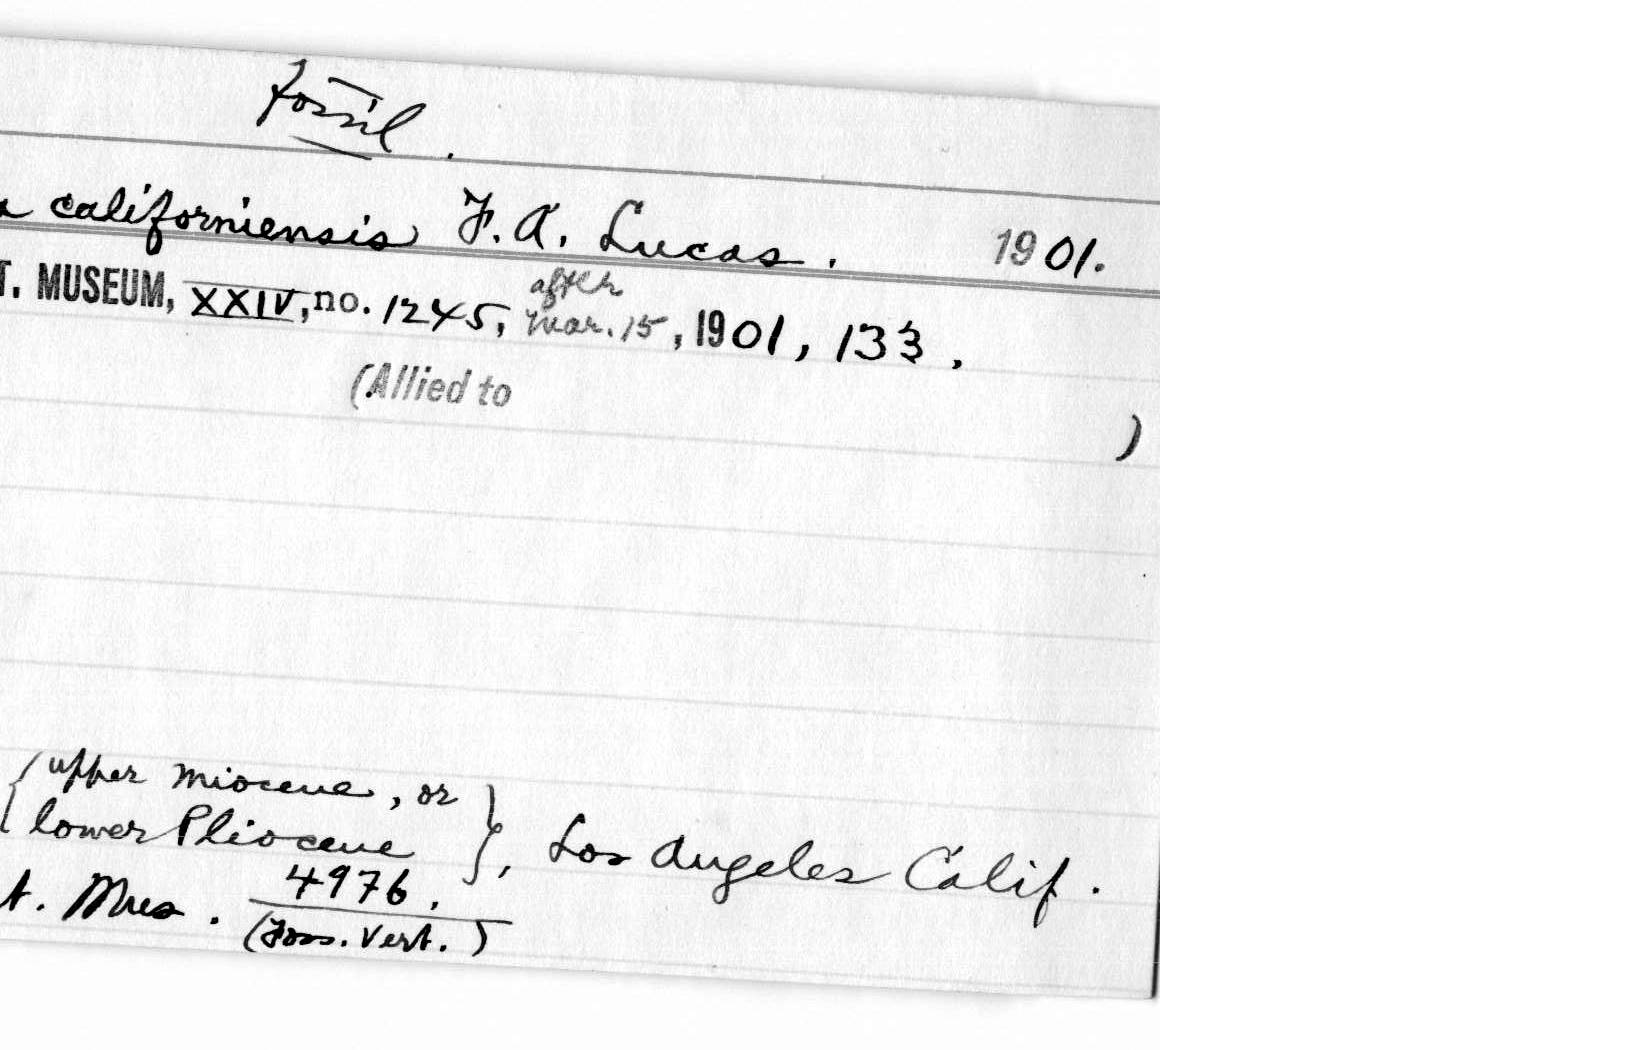 Fossil.
californiensis F. A. Lucas. 1901.
T. MUSEUM, XXIV, no. 1245, after Mar. 15, 1901, 133.
(Allied to )
{upper Miocene, or
lower Pliocene}, Los Angeles Calif.
t. Mus. 4976.
(Foss. Vert.)